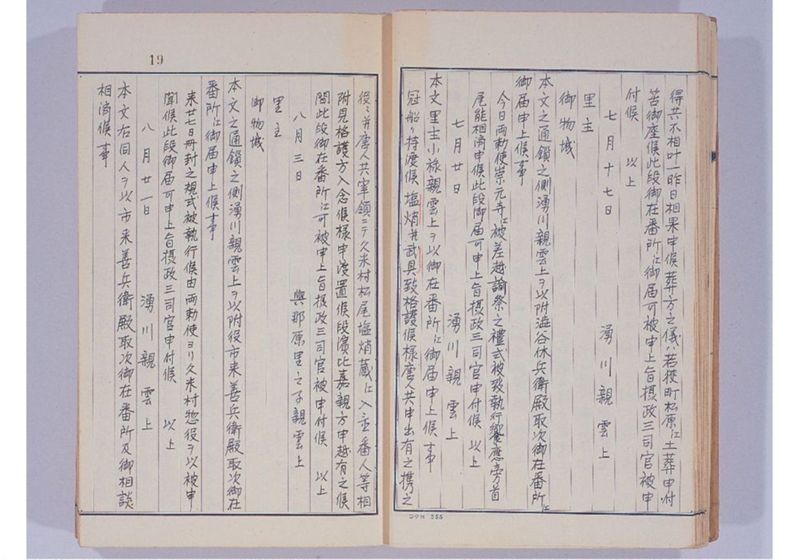 得共不相叶一昨日相果申候葬方之儀ハ若狭町松原江土葬申付
置御座候此段御在番所江御届可被申上旨摂政三司官被申
付候　以上
七月十七日　湧川親雲上
里主
御物城
本文之通鎖之側湧川親雲上ヲ以附澁谷休兵衛殿取次御在番所江
御届申上候事
今日両勅使崇元寺江被差越諭祭之禮式被致執行饗應旁首
尾能相済申候此段御届可申上旨摂政三司官申付候　以上
七月廿日　湧川親雲上
本文里主小禄親雲上ヲ以御在番所江御届申上候事
冠船ゟ持渡候塩焇并武具致格護候様唐人共申出有之携之
19
役々并唐人共宰領ニテ久米村松尾塩焇蔵江入並番人等相
附見格護方入念候様申渡置候段濱比嘉親方申越有之候
間此段御在番所江可被申上旨摂政三司官被申付候　以上
八月三日　與那原里之子親雲上
里主
御物城
本文之通鎖之側湧川親雲上ヲ以附役市来善兵衛殿取次御在
番所江御届申上候事
来廿七日冊封之規式被執行候由両勅使ヨリ久米村惣役ヲ以被申
聞候此段御届可申上旨摂政三司官申付候　以上
八月廿一日　湧川親雲上
本文右同人ヲ以市来善兵衛殿取次御在番所及御相談
相済候事